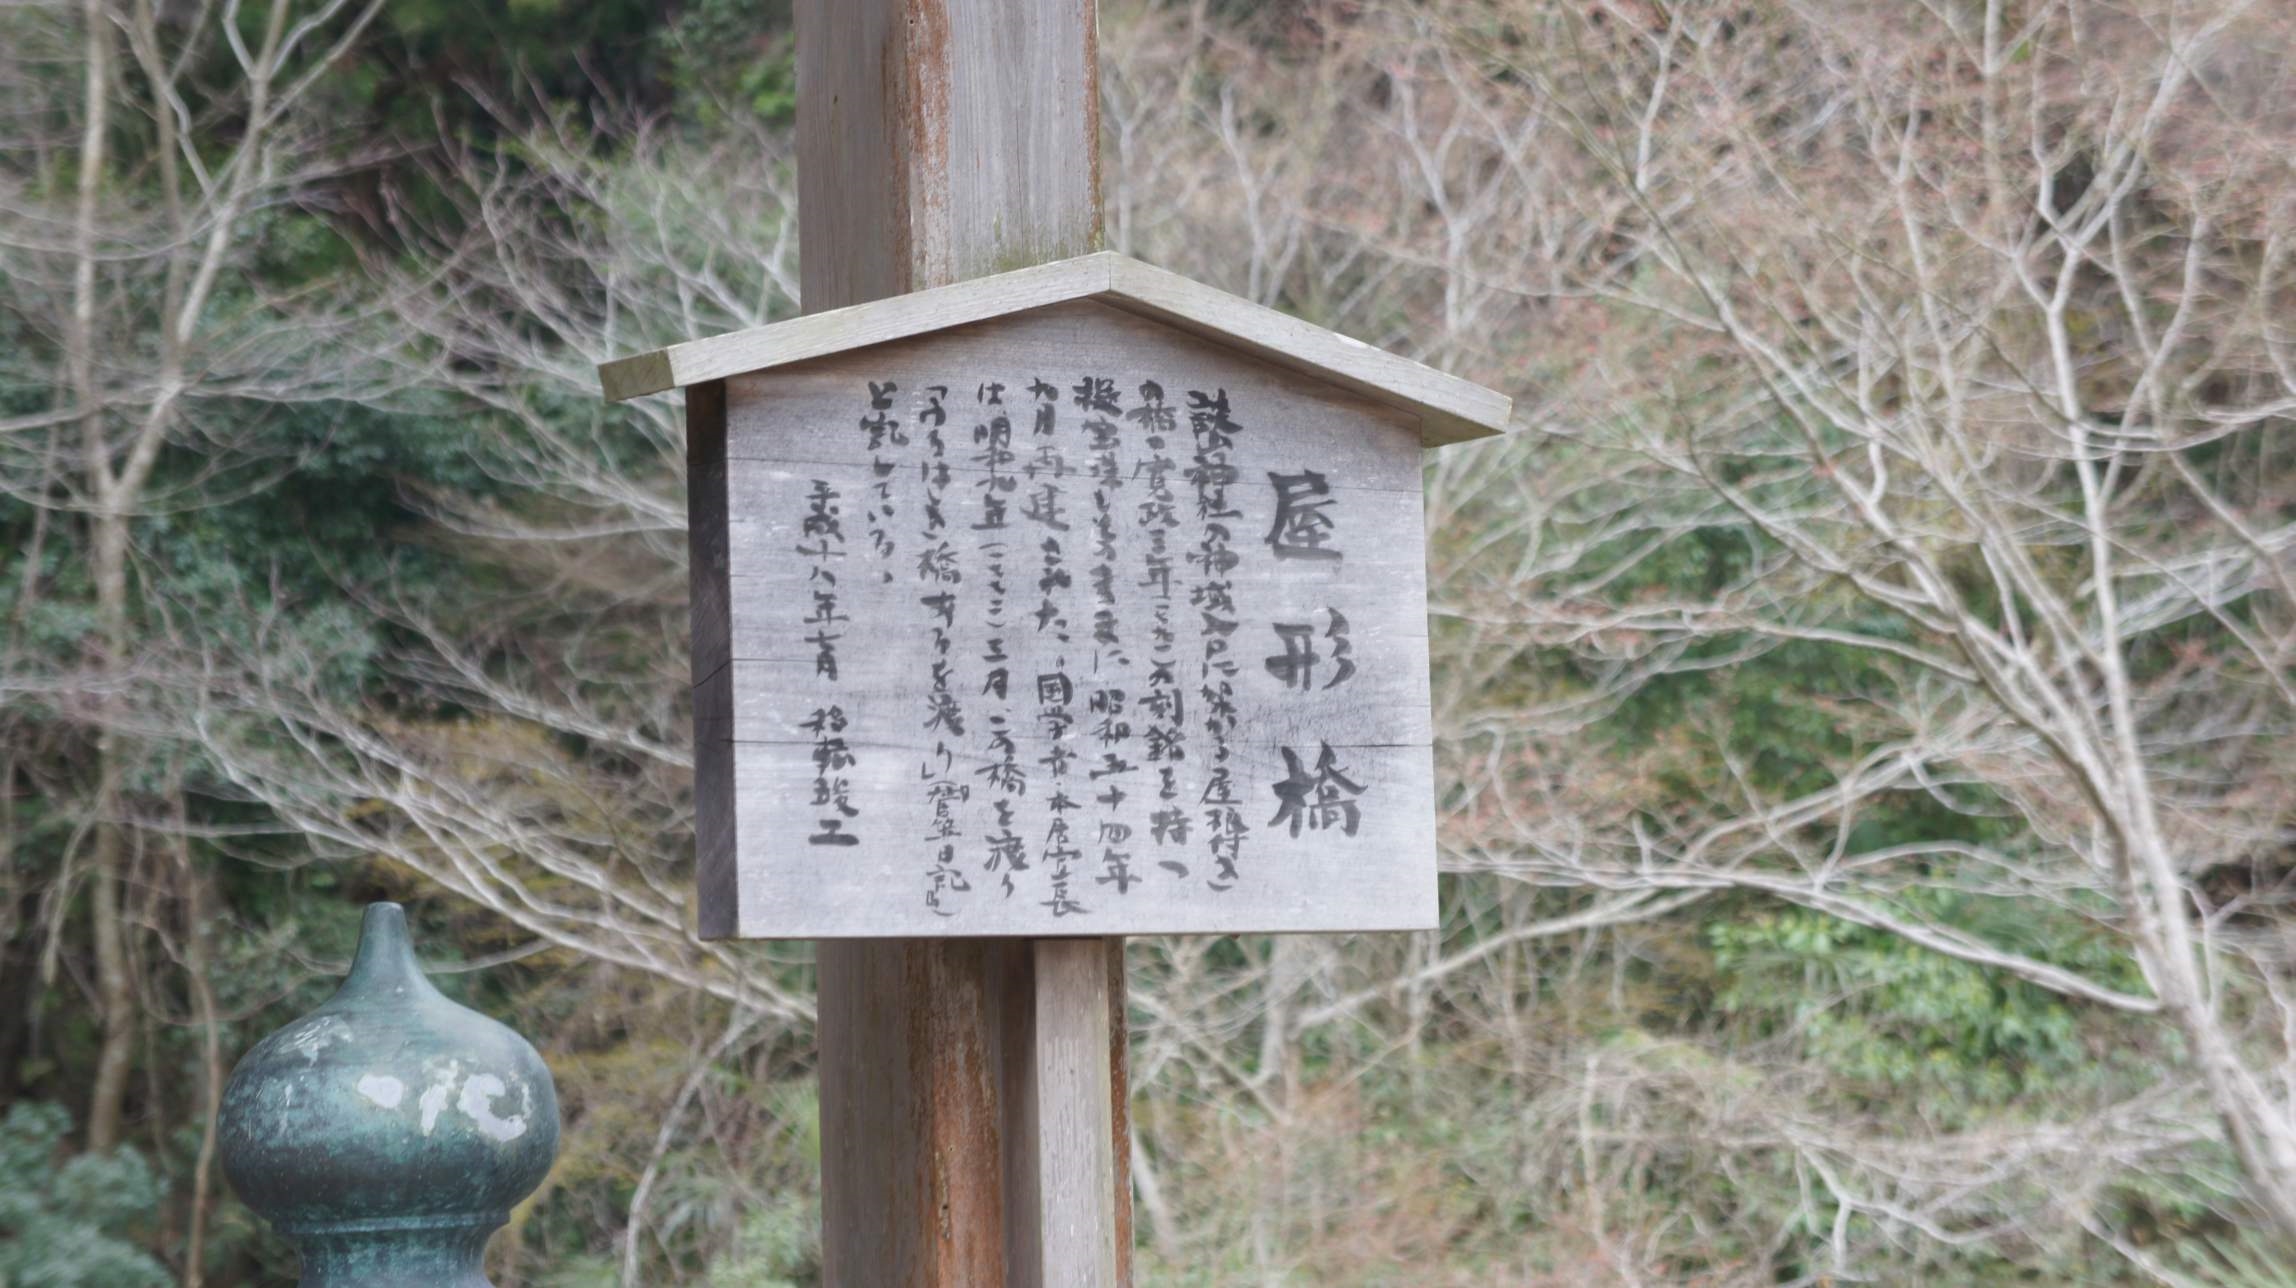 屋形橋
談山神社の神域入口に架かる屋根付き
の橋。寛政三年(一七九一)の刻銘を持つ
擬宝珠もそのままに昭和五十四年
九月再建された。国学者・本居宣長
は明和九年(一七七二)三月、この橋を渡り
「うるはしき橋あるを渡り」(『菅笠日記』)
と記している。
平成十八年七月 移転竣工